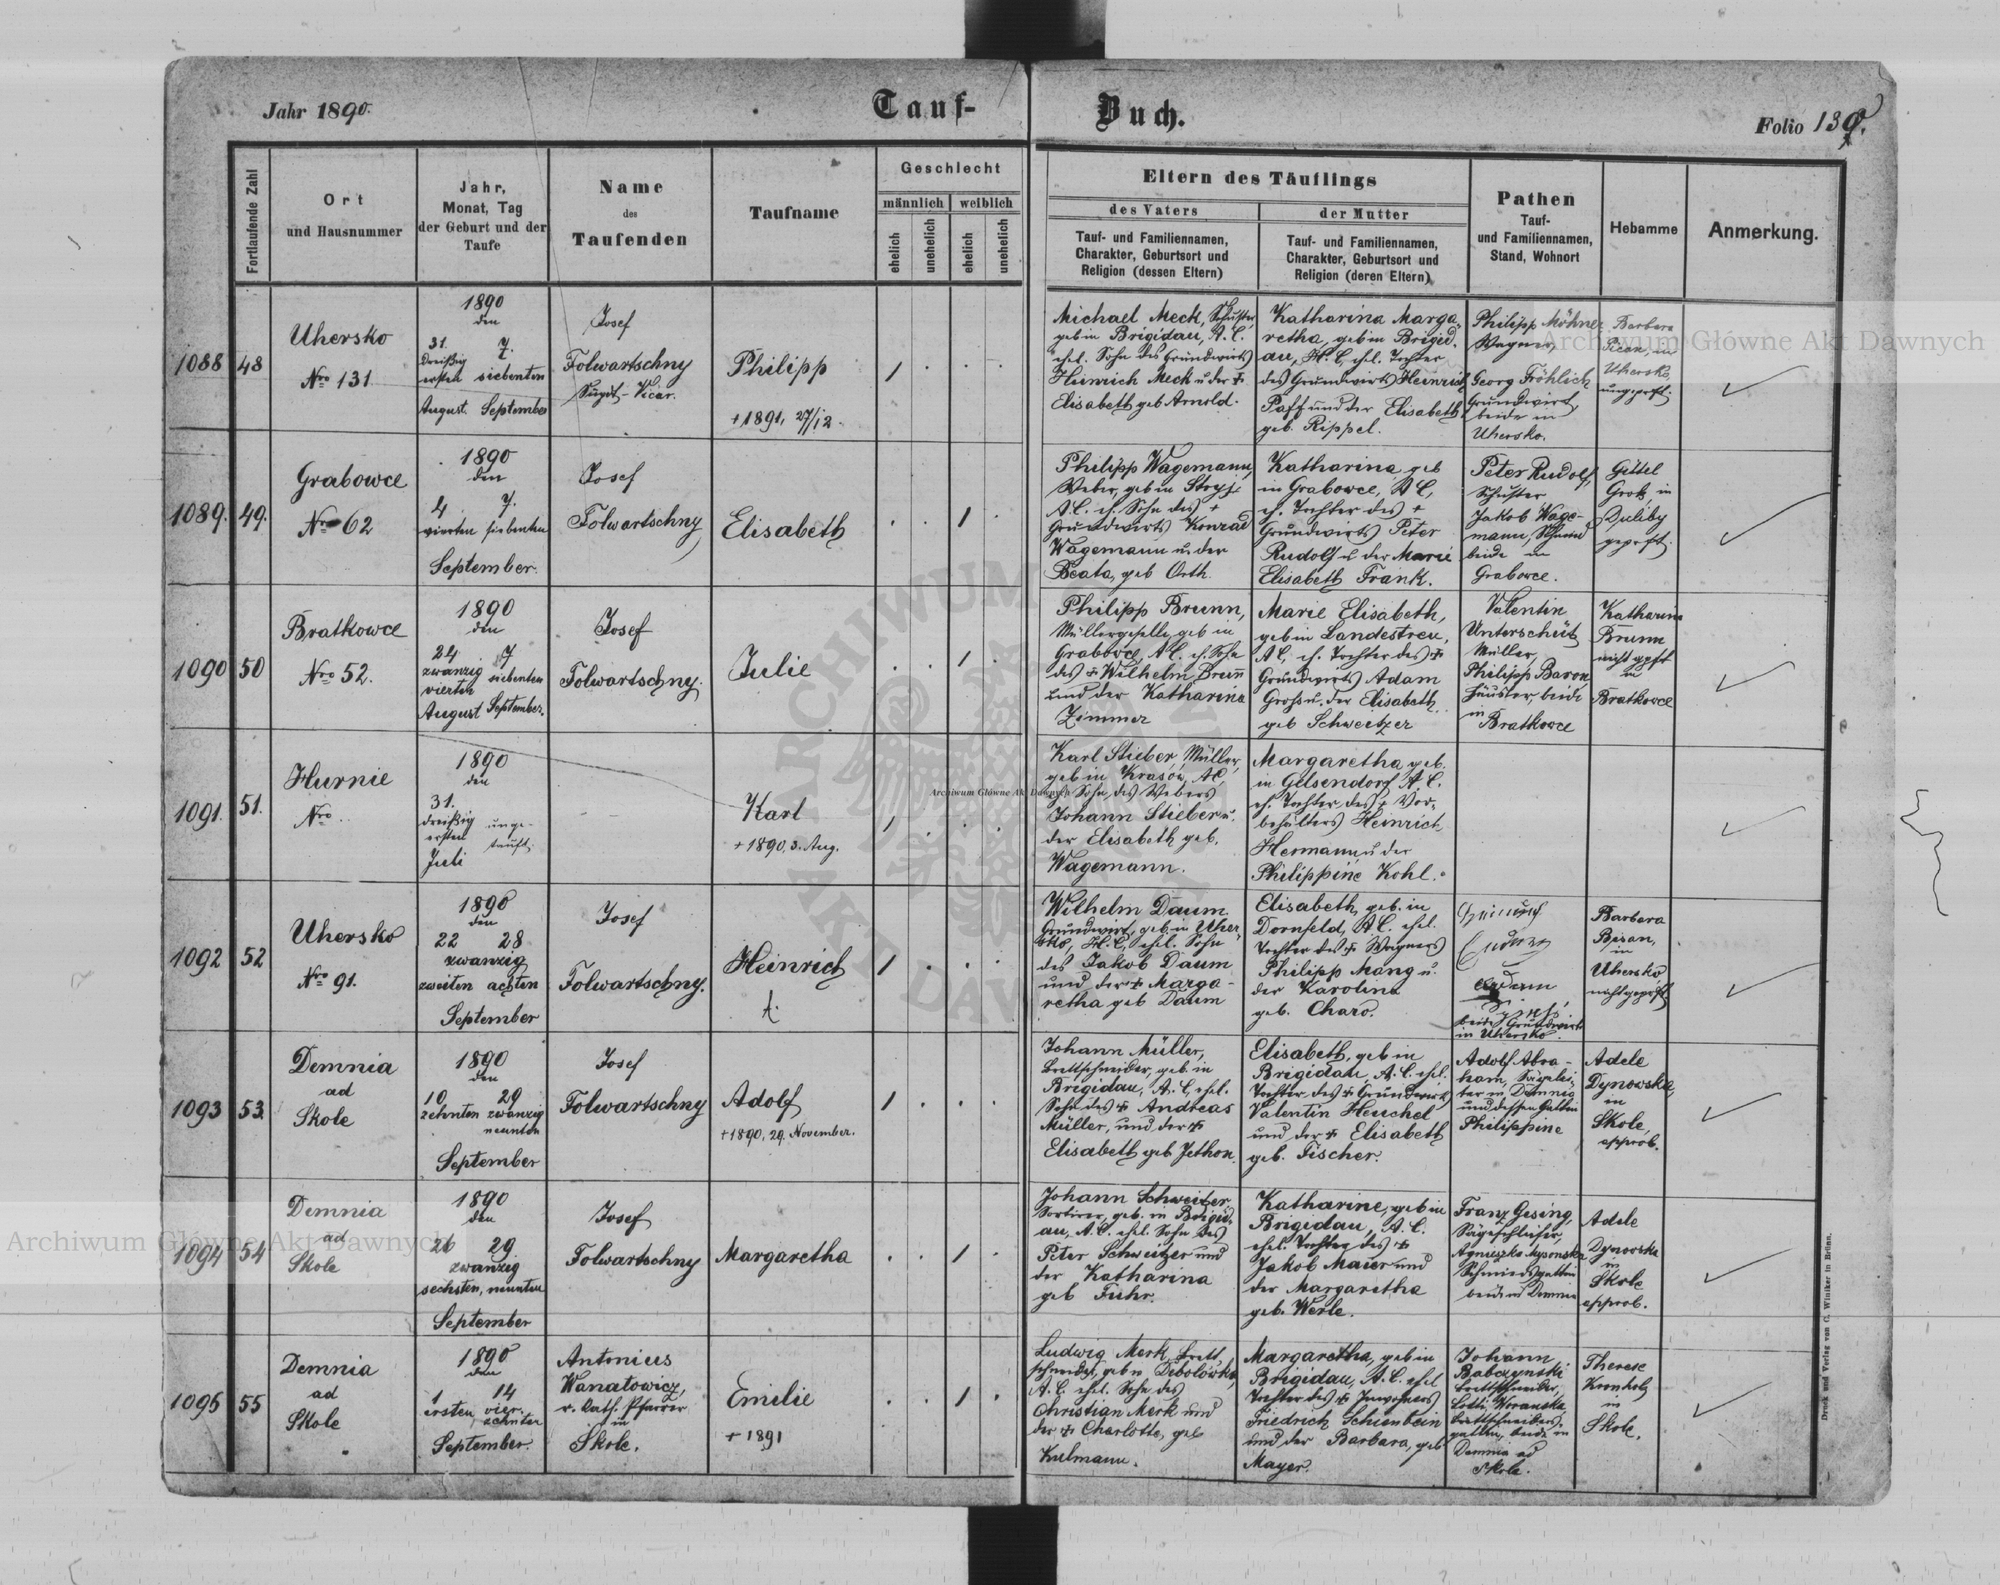 Jahr 1890.
Tauf-
Buch.
Folio 139.
Fortlaufende Zahl
Ort
und Hausnummer
Jahr,
Monat, Tag
der Geburt und der
Taufe
Name
des
Taufenden
Taufname
Geschlecht
männlich
weiblich
ehelich
unehelich
ehelich
unehelich
Eltern des Täuflings
des Vaters
der Mutter
Tauf- und Familiennamen,
Charakter, Geburtsort und
Religion (dessen Eltern)
Tauf- und Familiennamen,
Charakter, Geburtsort und
Religion (deren Eltern)
Pathen
Tauf-
und Familiennamen,
Stand, Wohnort
Hebamme
Anmerkung.
1088 48
Uhersko
Nro 131
1890
den
31. 7.
dreißig
ersten siebenten
August September
Josef
Folwartschny
Philipp
+ 1891, 27/12.
Michael Meck, Schuster,
geb in Brigidau, A.C.
ehel. Sohn des Grundwirts
Heinrich Meck u der +
Elisabeth geb Arnold.
Katharina Marga-
retha, geb in Brigid-
au, H.C, ehel. Tochter
des Grundwirts Heinrich
Paff und der Elisabeth
geb. Rippel.
Philipp Möhner
Wagner
Georg Fröhlich
Grundwirt,
beide in
Uhersko.
Barbara
in
Uhersko,
1089. 49.
Grabowce
Nro 62
1890
den
4 7.
vierten siebenten
September.
Josef
Folwartschny
Elisabeth
Philipp Wagemann,
Weber, geb in Stryj.
A.C. eh. Sohn des +
Grundwirts Konrad
Wagemann u. der
Beata, geb Orth.
Katharina geb
in Grabowce, A C,
eh. Tochter des +
Grundwirts Peter
Rudolf u der Marie
Elisabeth Frank.
Peter Rudolf,
Schuster
Jakob Wage-
mann,
beide in
Grabowce.
Gittel
in
Duliby
geprft.
1090 50
Bratkowce
Nro 52.
1890
den
24 7
zwanzig siebenten
vierten
August September.
Josef
Folwartschny.
Julie
Philipp Brunn,
Müllergeselle, geb in
Grabowce, A C. eh. Sohn
des + Wilhelm Brunn
und der Katharina
Zimmer
Marie Elisabeth,
geb in Landestreu,
A C, eh. Tochter des +
Grundwirts Adam
Gross u. der Elisabeth
geb Schweitzer
Valentin
Unterschütz
Müller,
Philipp Baron
Häusler, beide
in
Bratkowce
Katharina
Brunn
nicht gprft
in
Bratkowce
1091. 51.
Hurnie
Nro
1890
den
31.
dreißig unge-
ersten tauft.
Juli
Karl
+ 1890, 3. Aug.
Karl Stieber, Müller,
geb in Krasów, A C,
eh. Sohn, des Webers
Johann Stieber u.
der Elisabeth geb.
Wagemann.
Margaretha geb.
in Gelsendorf, A.C.
eh. Tochter, des + Vor-
behälters Heinrich
Hermann u der
Philippine Kohl.
1092 52
Uhersko
Nro 91.
1890
den
22 28
zwanzig
zweiten achten
September
Josef
Folwartschny.
Heinrich
+.
Wilhelm Daum
Grundwirt, geb in Uher-
sko, H.C, ehel. Sohn
des Jakob Daum
und der + Marga-
retha geb Daum
Elisabeth, geb. in
Dornfeld, A C. ehel.
Tochter des + Wagners
Philipp Mang u.
der Karolina
geb. Charo.
beide Grundwirte
in Uhersko.
Barbara
Bisan,
in
Uhersko
nicht geprft
1093 53.
Demnia
ad
Skole
1890
den
10 29
zehnten zwanzig
neunten
September
Josef
Folwartschny
Adolf
+ 1890, 29. November.
Johann Müller,
Brettschneider, geb. in
Brigidau, A.C, ehel.
Sohn des + Andreas
Müller, und der +
Elisabeth geb Jethon.
Elisabeth, geb in
Brigidau, A.C. ehel.
Tochter, des + Grundwirts
Valentin Heuchel
und der + Elisabeth
geb. Fischer.
Adolf Abra-
ham,
in Demnia
und dessen Gattin
Philippine
Adele
Dynowska,
in
Skole,
approb.
1094 54
Demnia
ad
Skole
1890
den
26 29
zwanzig
sechsten, neunten
September
Josef
Folwartschny
Margaretha
Johann Schweitzer,
Sortirer, geb. in Brigid-
au, A.C. ehel. Sohn des
Peter Schweitzer und
der Katharina
geb Fuhr.
Katharine, geb in
Brigidau, A.C.
ehel. Tochter des +
Jakob Maier und
der Margaretha
geb. Werle.
Franz Gesing,
Sägeschleifer,
Agnieszka Mysonska
Schmiedsgattin
beide in Demnia
Adele
Dynowska
in
Skole
approb.
1096 55
Demnia
ad
Skole
1890
den
1 14
ersten vier-
zehnten
September.
Antonius
Wanatowicz,
r. kath. Pfarrer
in
Skole.
Emilie
+ 1891
Ludwig Merk, Brett-
schneider, geb in Debolówka,
A.C. ehel. Sohn des
Christian Merk und
der + Charlotte, geb
Kulmann.
Margaretha, geb in
Brigidau, A.C. ehel
Tochter des + Inwohners
Friedrich Schienbein
und der Barbara, geb
Mayer.
Johann
Babczynski
Brettschneider,
Brettschneiders-
gattin, beide in
Demnia ad
Skole.
Therese
Kronholz
in
Skole.
Druck und Verlag von C. Winiker in Brünn.
Archiwum Główne Akt Dawnych
Archiwum Główne Akt Dawnych
Archiwum Główne Akt Dawnych